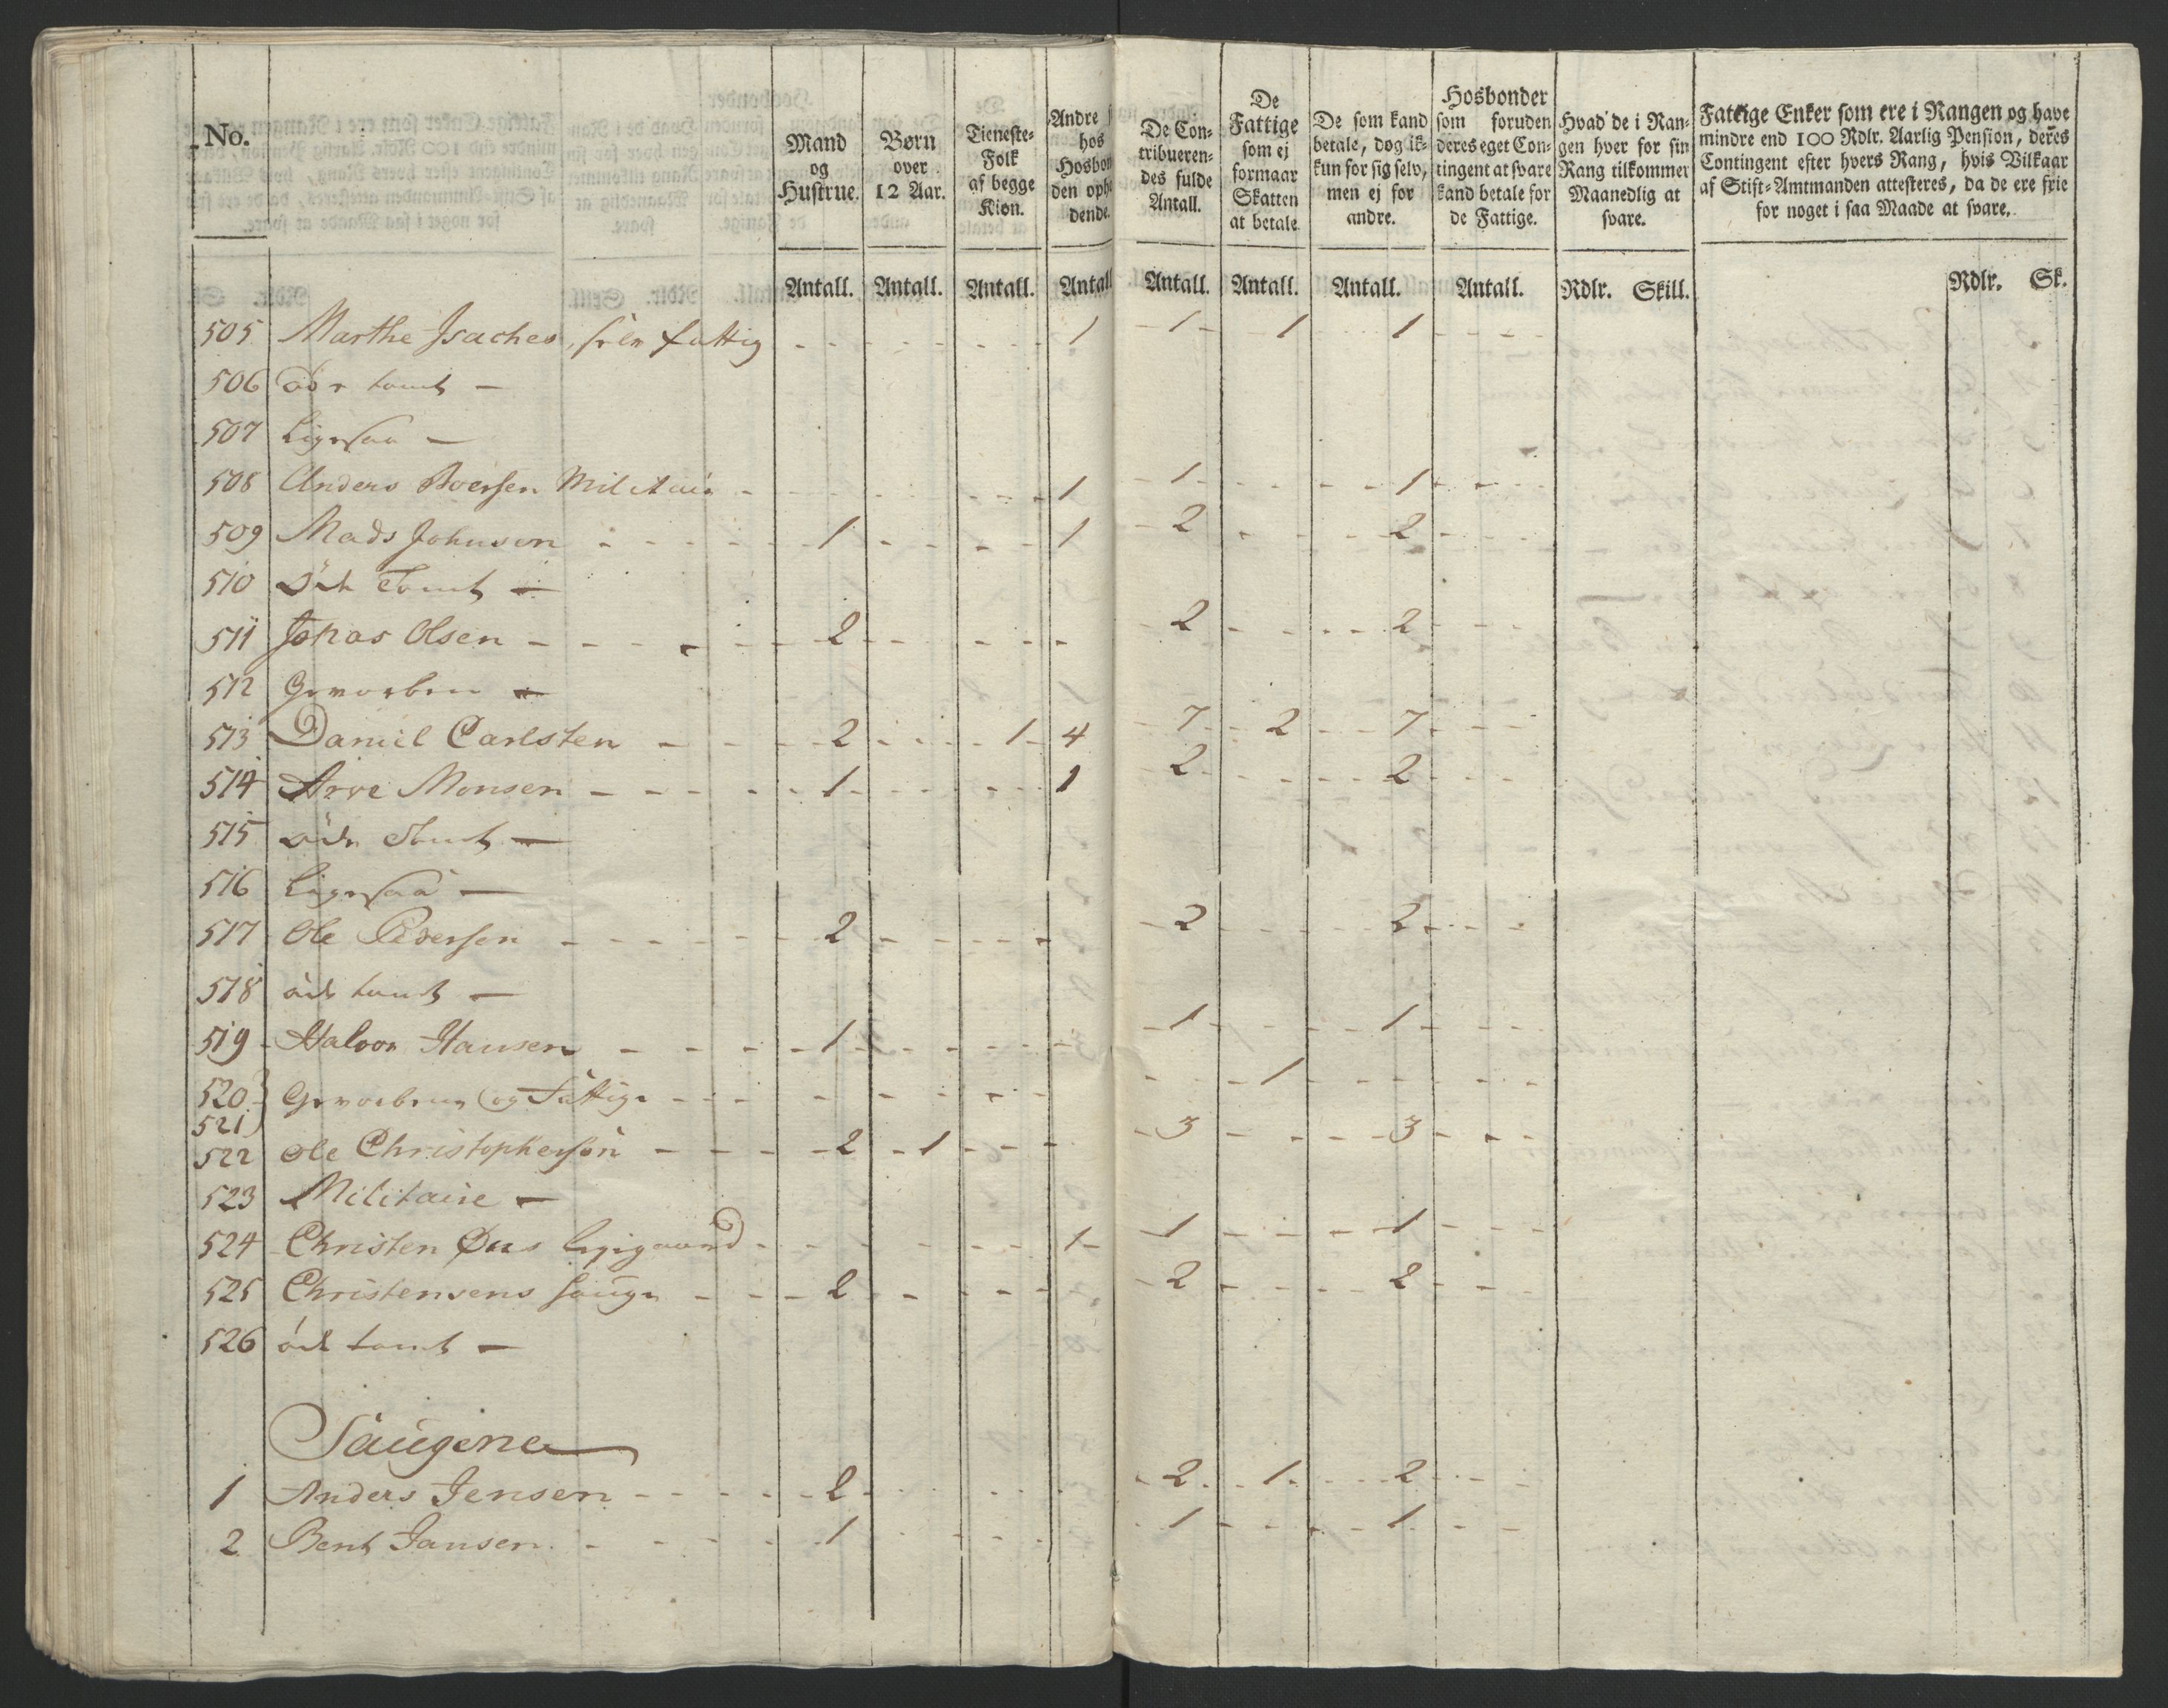 No.
Mand og Hustrue.
Børn over 12 Aar.
Tieneste-Folk af begge Kiøn.
Andre hos Hosbon den opho dende.
De Con-tribueren-des fulde Antall.
De Fattige som ej formaar Skatten at betale.
De som kand betale, dog ik-kun for sig selv, men ej for andre.
Hosbonder som foruden deres eget Con-tingent at svare kand betale for de Fattige.
Hvad de i Ran-gen hver for sin Rang tilkommer Maanedlig at svare.
Fattige Enker som ere i Rangen og have mindre end 100 Rdlr. Aarlig Pension, deres Contingent efter hvers Rang, hvis Vilkaar af Stift-Amtmanden attesteres, da de ere frie for noget i saa Maade at svare.
Antall. Antall. Antall. Antall Antall. Antall. Antall. Antall. Rdlr. Skill. Rdlr. Sk.
505 Marthe Isaches, fattig 1 1 1 1
506 tomt
507 Ligesaa
508 Anders Militair 1 1 1
509 Mads Johnsen 1 1 2 2
510 Öde Tomt
511 Jonas Olsen 2 2 2
512 Gevorben
513 Daniel Carlsten 2 1 4 7 2 7
514 Arve Monsen 1 1 2 2
515 öde Tomt
516 Ligesaa
517 Ole Pedersen 2 2 2
518 öde tomt
519 Halvor Hansen 1 1 1
520 Gevorbene og Fattige 1
521
522 Ole Christophersøn 2 1 3 3
523 Militaire
524 Christen 1 1 1
525 Christensens Sauge 2 2 2
526 öde tomt
Saugene
1 Anders Jensen 2 2 1 2
2 Bent Jansen 1 1 1